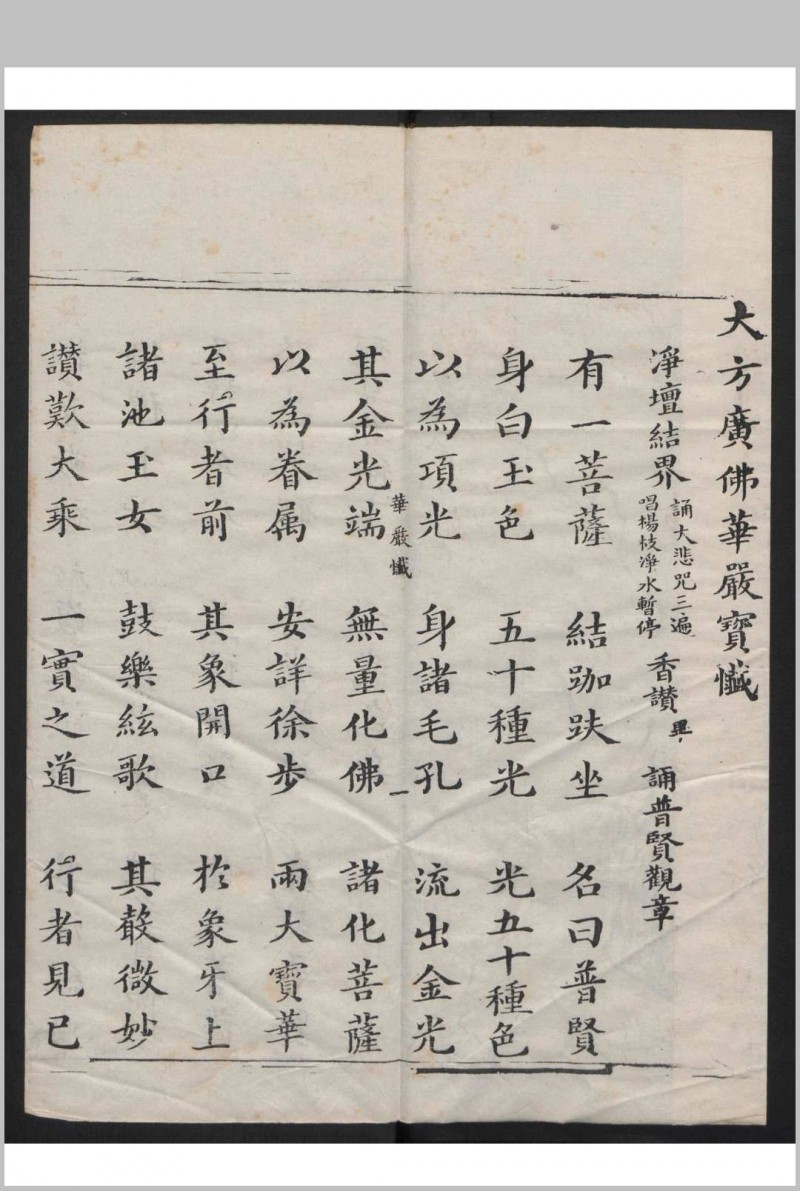 大方廣佛華嚴寶懺
淨壇結界 誦大悲咒三遍 唱楊枝淨水暫停 香讚畢 誦普賢觀章
有一菩薩 結跏趺坐 名曰普賢
身白玉色 五十種光 光五十種色
以為項光 身諸毛孔 流出金光
華嚴懺 一
其金光端 無量化佛 諸化菩薩
以為眷属 安詳徐步 雨大寶華
至行者前 其象開口 於象牙上
諸池玉女 鼓樂絃歌 其聲微妙
讃歎大乘 一實之道 行者見已